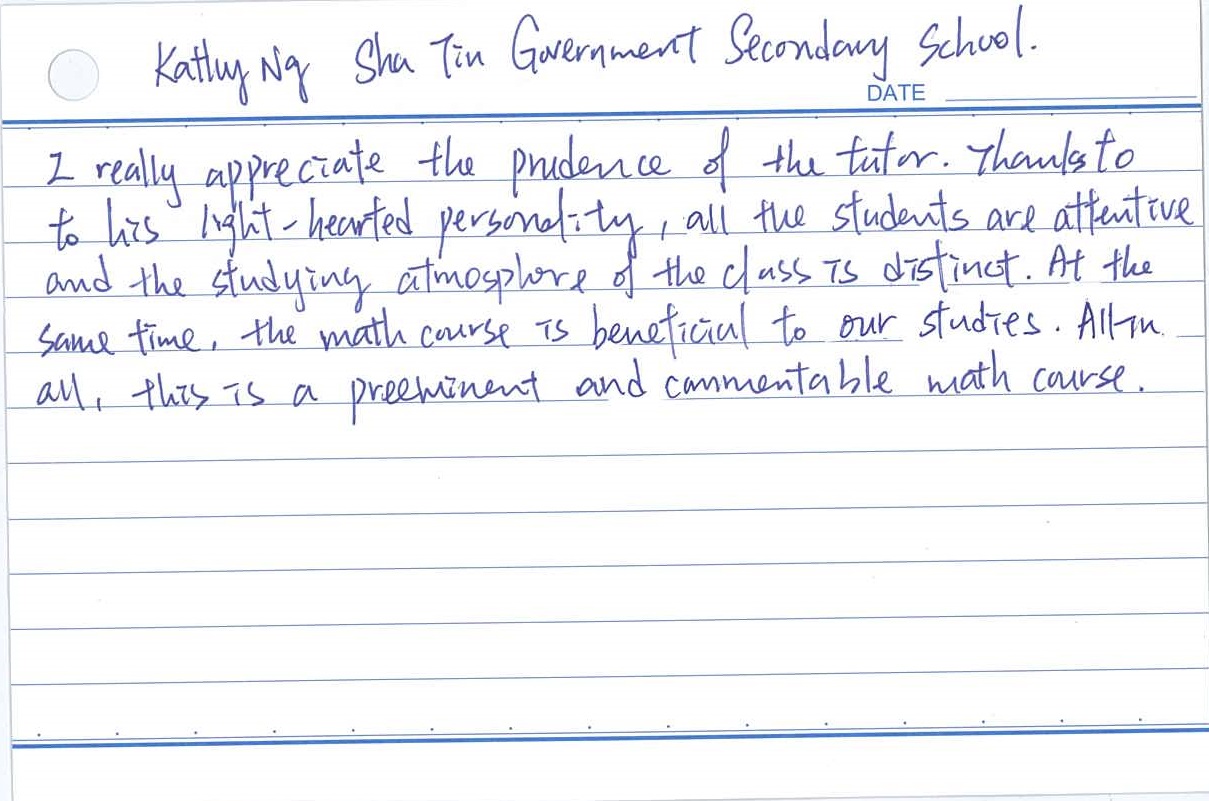 Kathy Ng Sha Tin Government Secondary School.
DATE
I really appreciate the prudence of the tutor. Thanks to
to his light-hearted personality, all the students are attentive
and the studying atmosphere of the class is distinct. At the
same time, the math course is beneficial to our studies. All in
all, this is a preeminent and commentable math course.